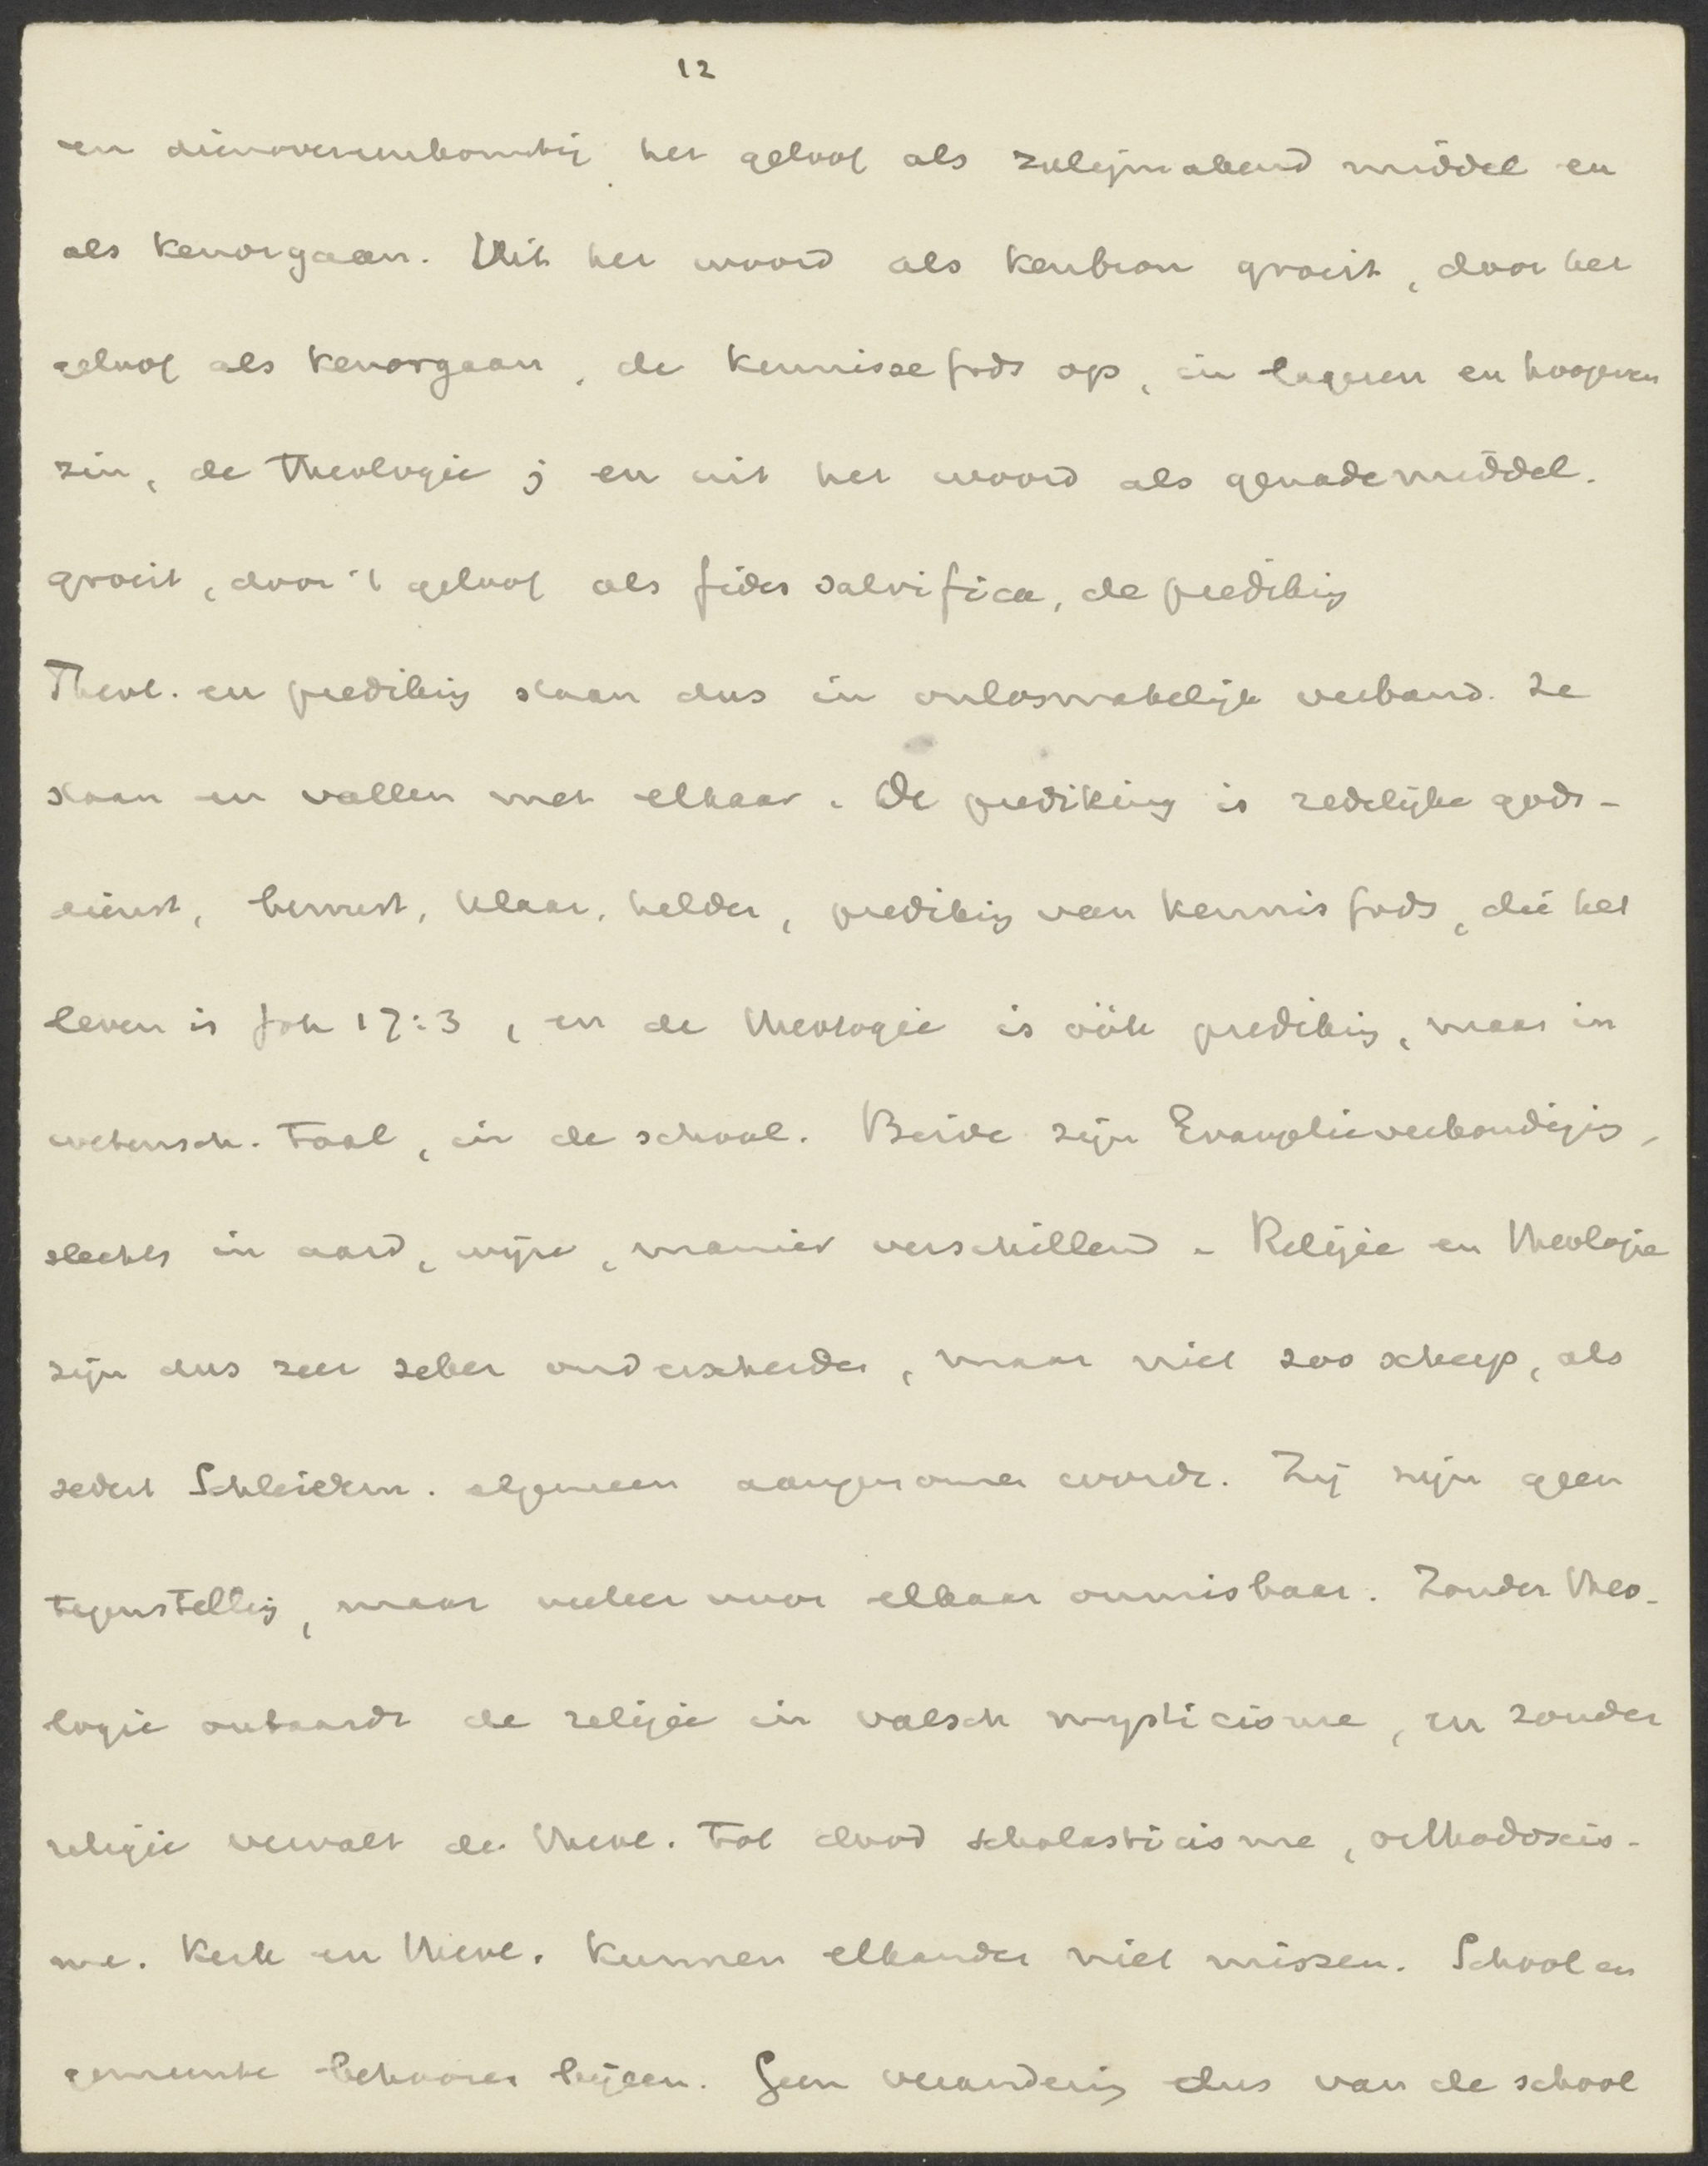 12
en dienovereenkomstig het geloof als zaligmakend middel en
als kenorgaan. Uit het woord als kenbron groeit, door het
geloof als kenorgaan, de kennisse Gods op, in lageren en hoogeren
zin, de Theologie; en uit het woord als genademiddel.
groeit, door 't geloof als fides salvifica, de prediking
Theol. en prediking staan dus in onlosmakelijk verband. Ze
staan en vallen met elkaar. De prediking is redelijke gods-
dienst, bewust, klaar, helder, prediking van kennis Gods, die het
leven is Joh 17:3, en de theologie is óók prediking, maar in
wetensch. taal, in de school. Beide zijn Evangelieverkondiging,
slechts in aard, wijze, manier verschillend. Religie en theologie
zijn dus zeer zeker onderscheiden, maar niet zoo scherp, als
sedert Schleierm. algemeen aangenomen wordt. Zij zijn geen
tegenstelling, maar veeleer voor elkaar onmisbaar. Zonder theo-
logie ontaardt de religie in valsch mysticisme, en zonder
religie vervalt de theol. tot dood scholasticisme, orthodoxis-
me. Kerk en theol. kunnen elkander niet missen. School en
gemeente behooren bijeen. Geen verandering dus van de school